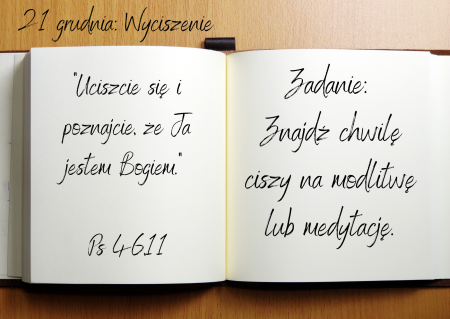 21 grudnia: Wyciszenie
"Uciszcie się i
poznajcie, że Ja
jestem Bogiem."
Ps 46,11
Zadanie:
Znajdź chwilę
ciszy na modlitwę
lub medytację.